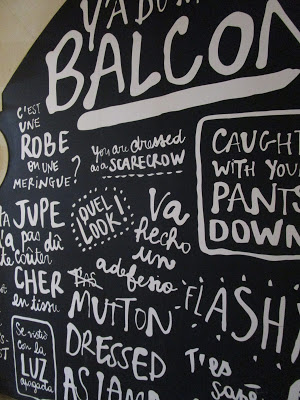 Y'A DU M
BALCON
C'EST
UNE
ROBE
OU UNE
MERINGUE?
You are dressed
as a SCARECROW
CAUGHT
WITH YOUR
PANTS
DOWN
TA JUPE
t'a pas dû
te coûter
CHER
en tissu
QUEL
LOOK!
Va
hecho
un
adefesio
FLASHY
PAS
MUTTON
DRESSED
AS LAMB
Se vistió
con la
LUZ
apagada
T'es
sapé